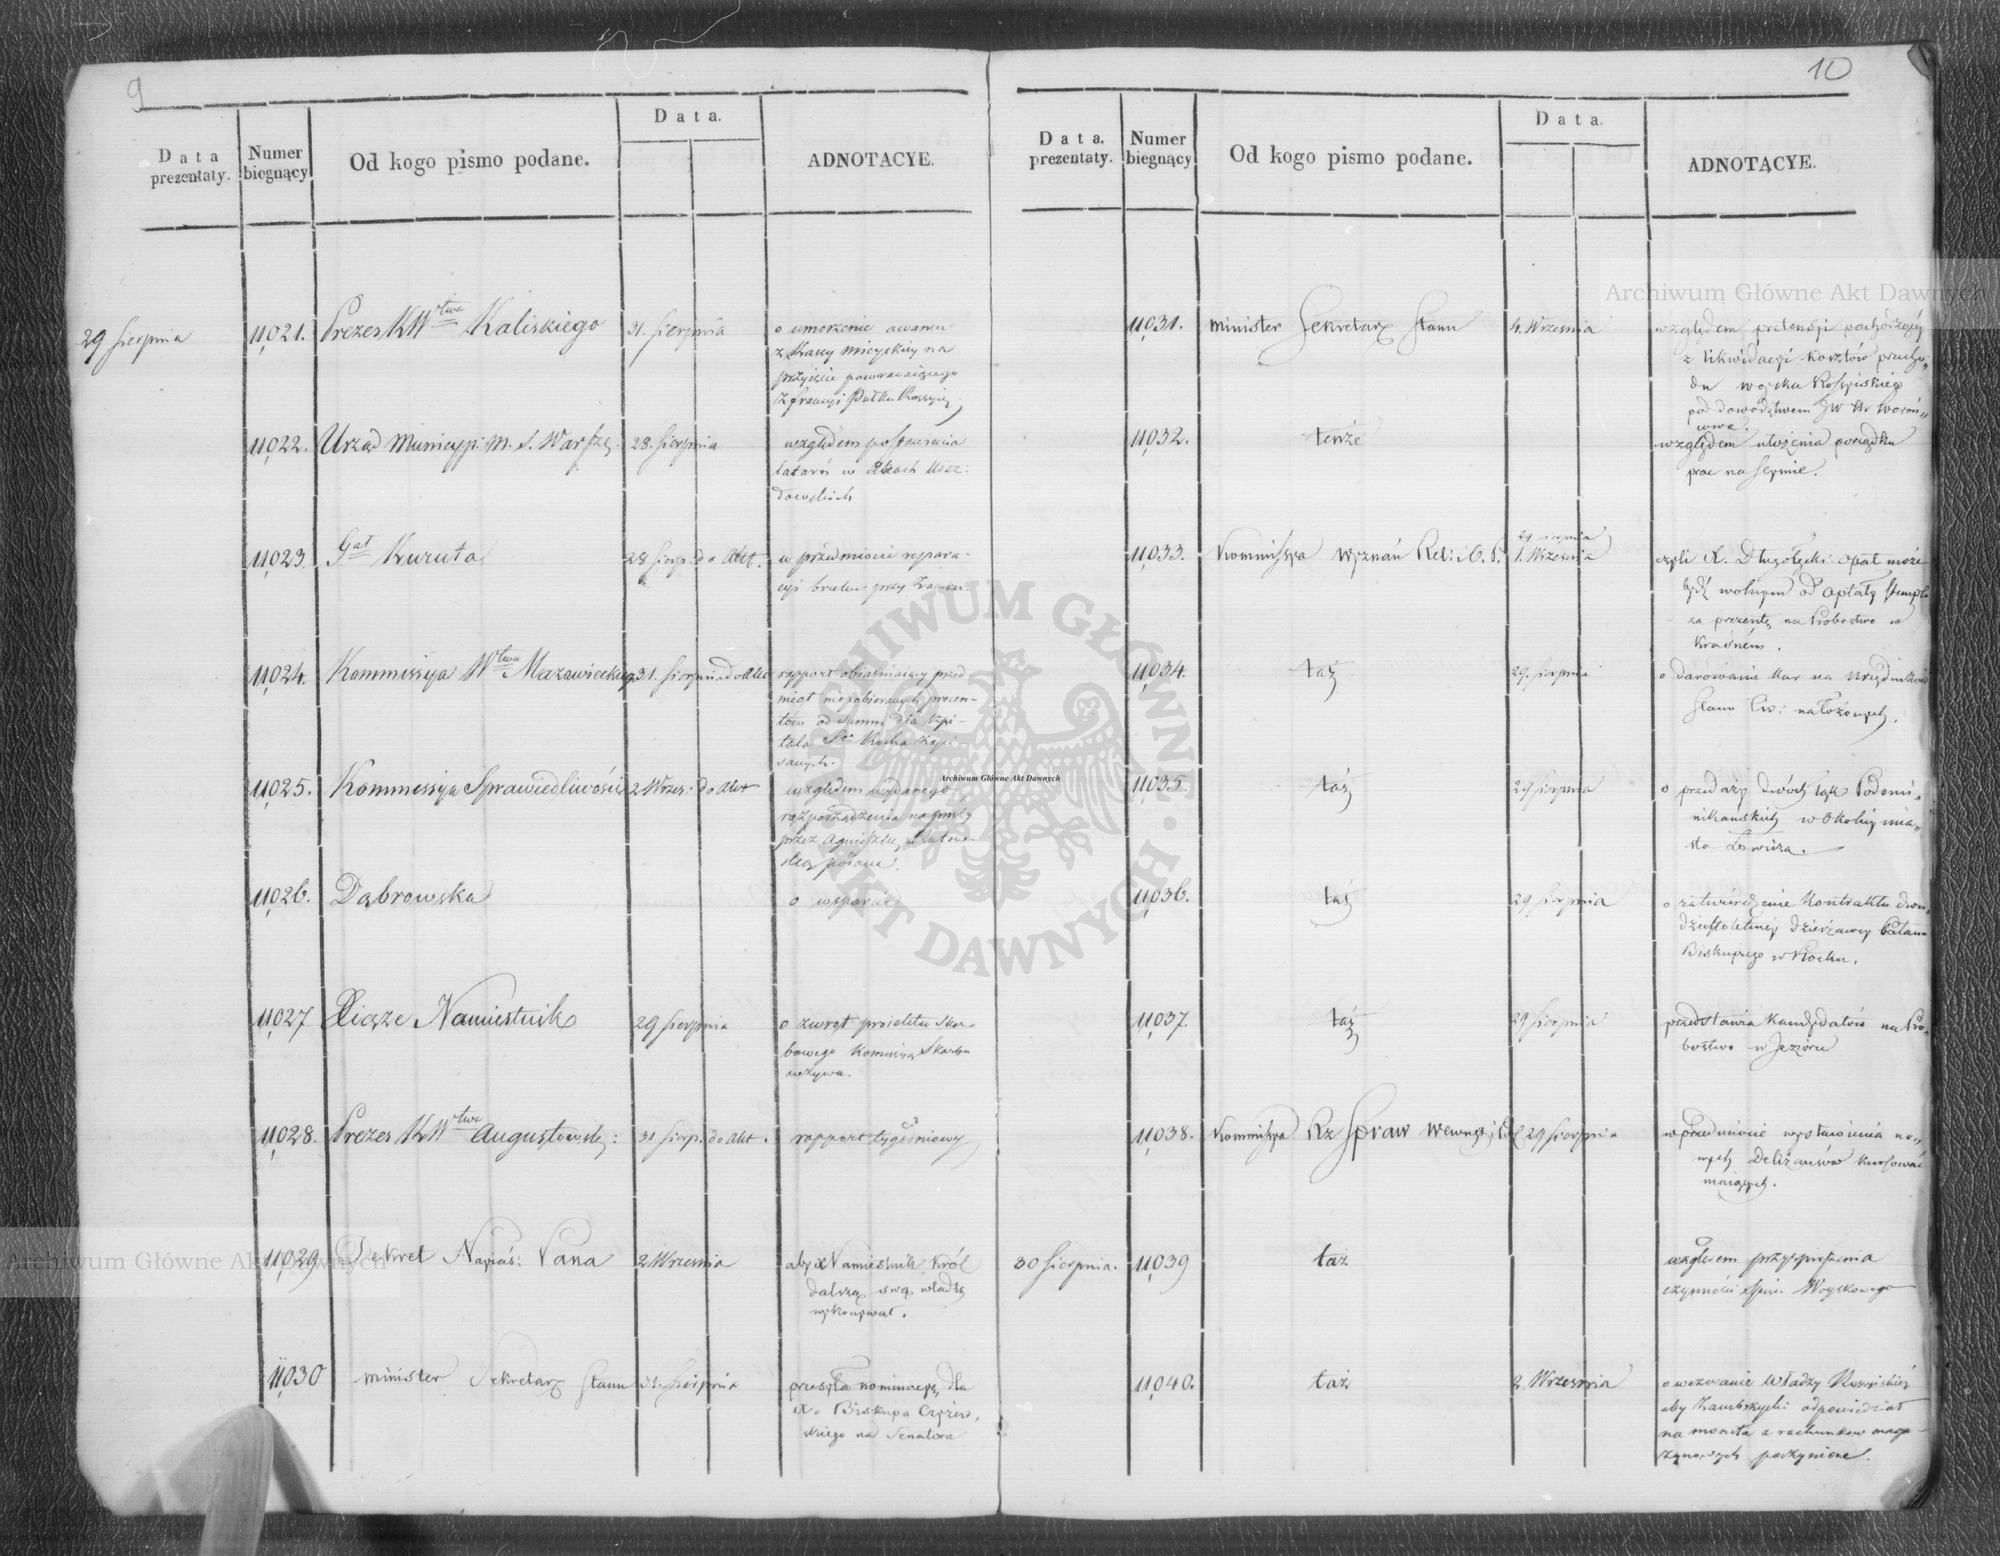 9
Data prezentaty.
Numer biegnący
Od kogo pismo podane.
Data.
ADNOTACYE.
29 Sierpnia
11,021. Prezes KWtwa Kaliskiego
31. Sierpnia
o umorzenie awansu
z Kassy mieyskiey na
przyięcie powracaiącego
z francyi Pułku Rossyis.
11,022. Urząd Municyp: M. S. Warsz.
28. Sierpnia
względem postawienia
latarń w Uiaz:
dowskich
11,023. Gał Kuruta
28 Sierp. do Akt.
w przedmiocie repara-
cyi bruku przy Zamku.
11,024. Kommissya Wtwa Mazowieckiego
31. Sierpnia do Akt
rapport obiaśniaiący przed
miot niepobieranych procen-
tów od summ dla Szpi-
tala Sgo Rocha zapi-
sanych.
11,025. Kommissya Sprawiedliwości
2 Wrześ: do Akt
względem wydanego
rozporządzenia na proźby
przez Agnieszkę
podane.
11,026. Dąbrowska
o wsparcie
11,027 Xiąże Namiestnik
29 Sierpnia
o zwrot proiektu Skar-
bowego Kommissyą Skarbu
wzywa.
11,028. Prezes KWtwa Augustowsk:
31 Sierp. do Akt.
rapport tygodniowy
11,029 Dekret Nayiaś: Pana
2 Września
aby X Namiestnik Król
dalszą swą władzę
wykonywał.
11,030 Minister Sekretarz Stanu
31. Sierpnia
przesyła nominacyę dla
X. Biskupa
skiego na Senatora
10
Data. prezentaty.
Numer biegnący
Od kogo pismo podane.
Data.
ADNOTACYE.
11,031. Minister Sekretarz Stanu
4. Września
względem pretensyi pochodzącey
z likwidacyi kosztów przecho„
du woyska Rossyiskiego
pod dowództwem JW Hr Woroń„
cowa.
11,032. tenże
względem ułożenia porządku
prac na Seymie.
11,033. Kommissya Wyznań Rel: i O. P.
29 sierpnia
1. Września
czyli X. Długołęcki opat może
bydź wolnym od opłaty stempla
za prezentę na Probostwo w
Kraśném.
11,034. taż
29. Sierpnia
o darowanie kar na Urzędników
Stanu Civ: nałożonych.
11,035. taż
29 Sierpnia
o przedaży dwóch łąk Podomi„
nikańskich w okolicy mia„
sta Łowicza.
11,036. taż
29 Sierpnia
o zatwierdzenie Kontraktu dwu„
dziestoletniey dzierżawy
Biskupiego w Płocku.
11,037. taż
29 Sierpnia
przedstawia kandydatów na Pro„
bostwo w Jeziora
11,038. Kommissya Rz Spraw Wewnęt: i Pol
29 Sierpnia
w przedmiocie wystawienia no„
wych Deliżansów kursować
maiących.
30 Sierpnia.
11,039 taż
względem przyspieszenia
czynności spisu Woyskowego
11,040. taż
2. Września
o wezwanie Władzy Rossyiskiey
aby Zambrzycki odpowiedział
na monita z rachunków maga-
zynowych poczynione.
Archiwum Główne Akt Dawnych
Archiwum Główne Akt Dawnych
Archiwum Główne Akt Dawnych
ARCHIWUM GŁÓWNE AKT DAWNYCH